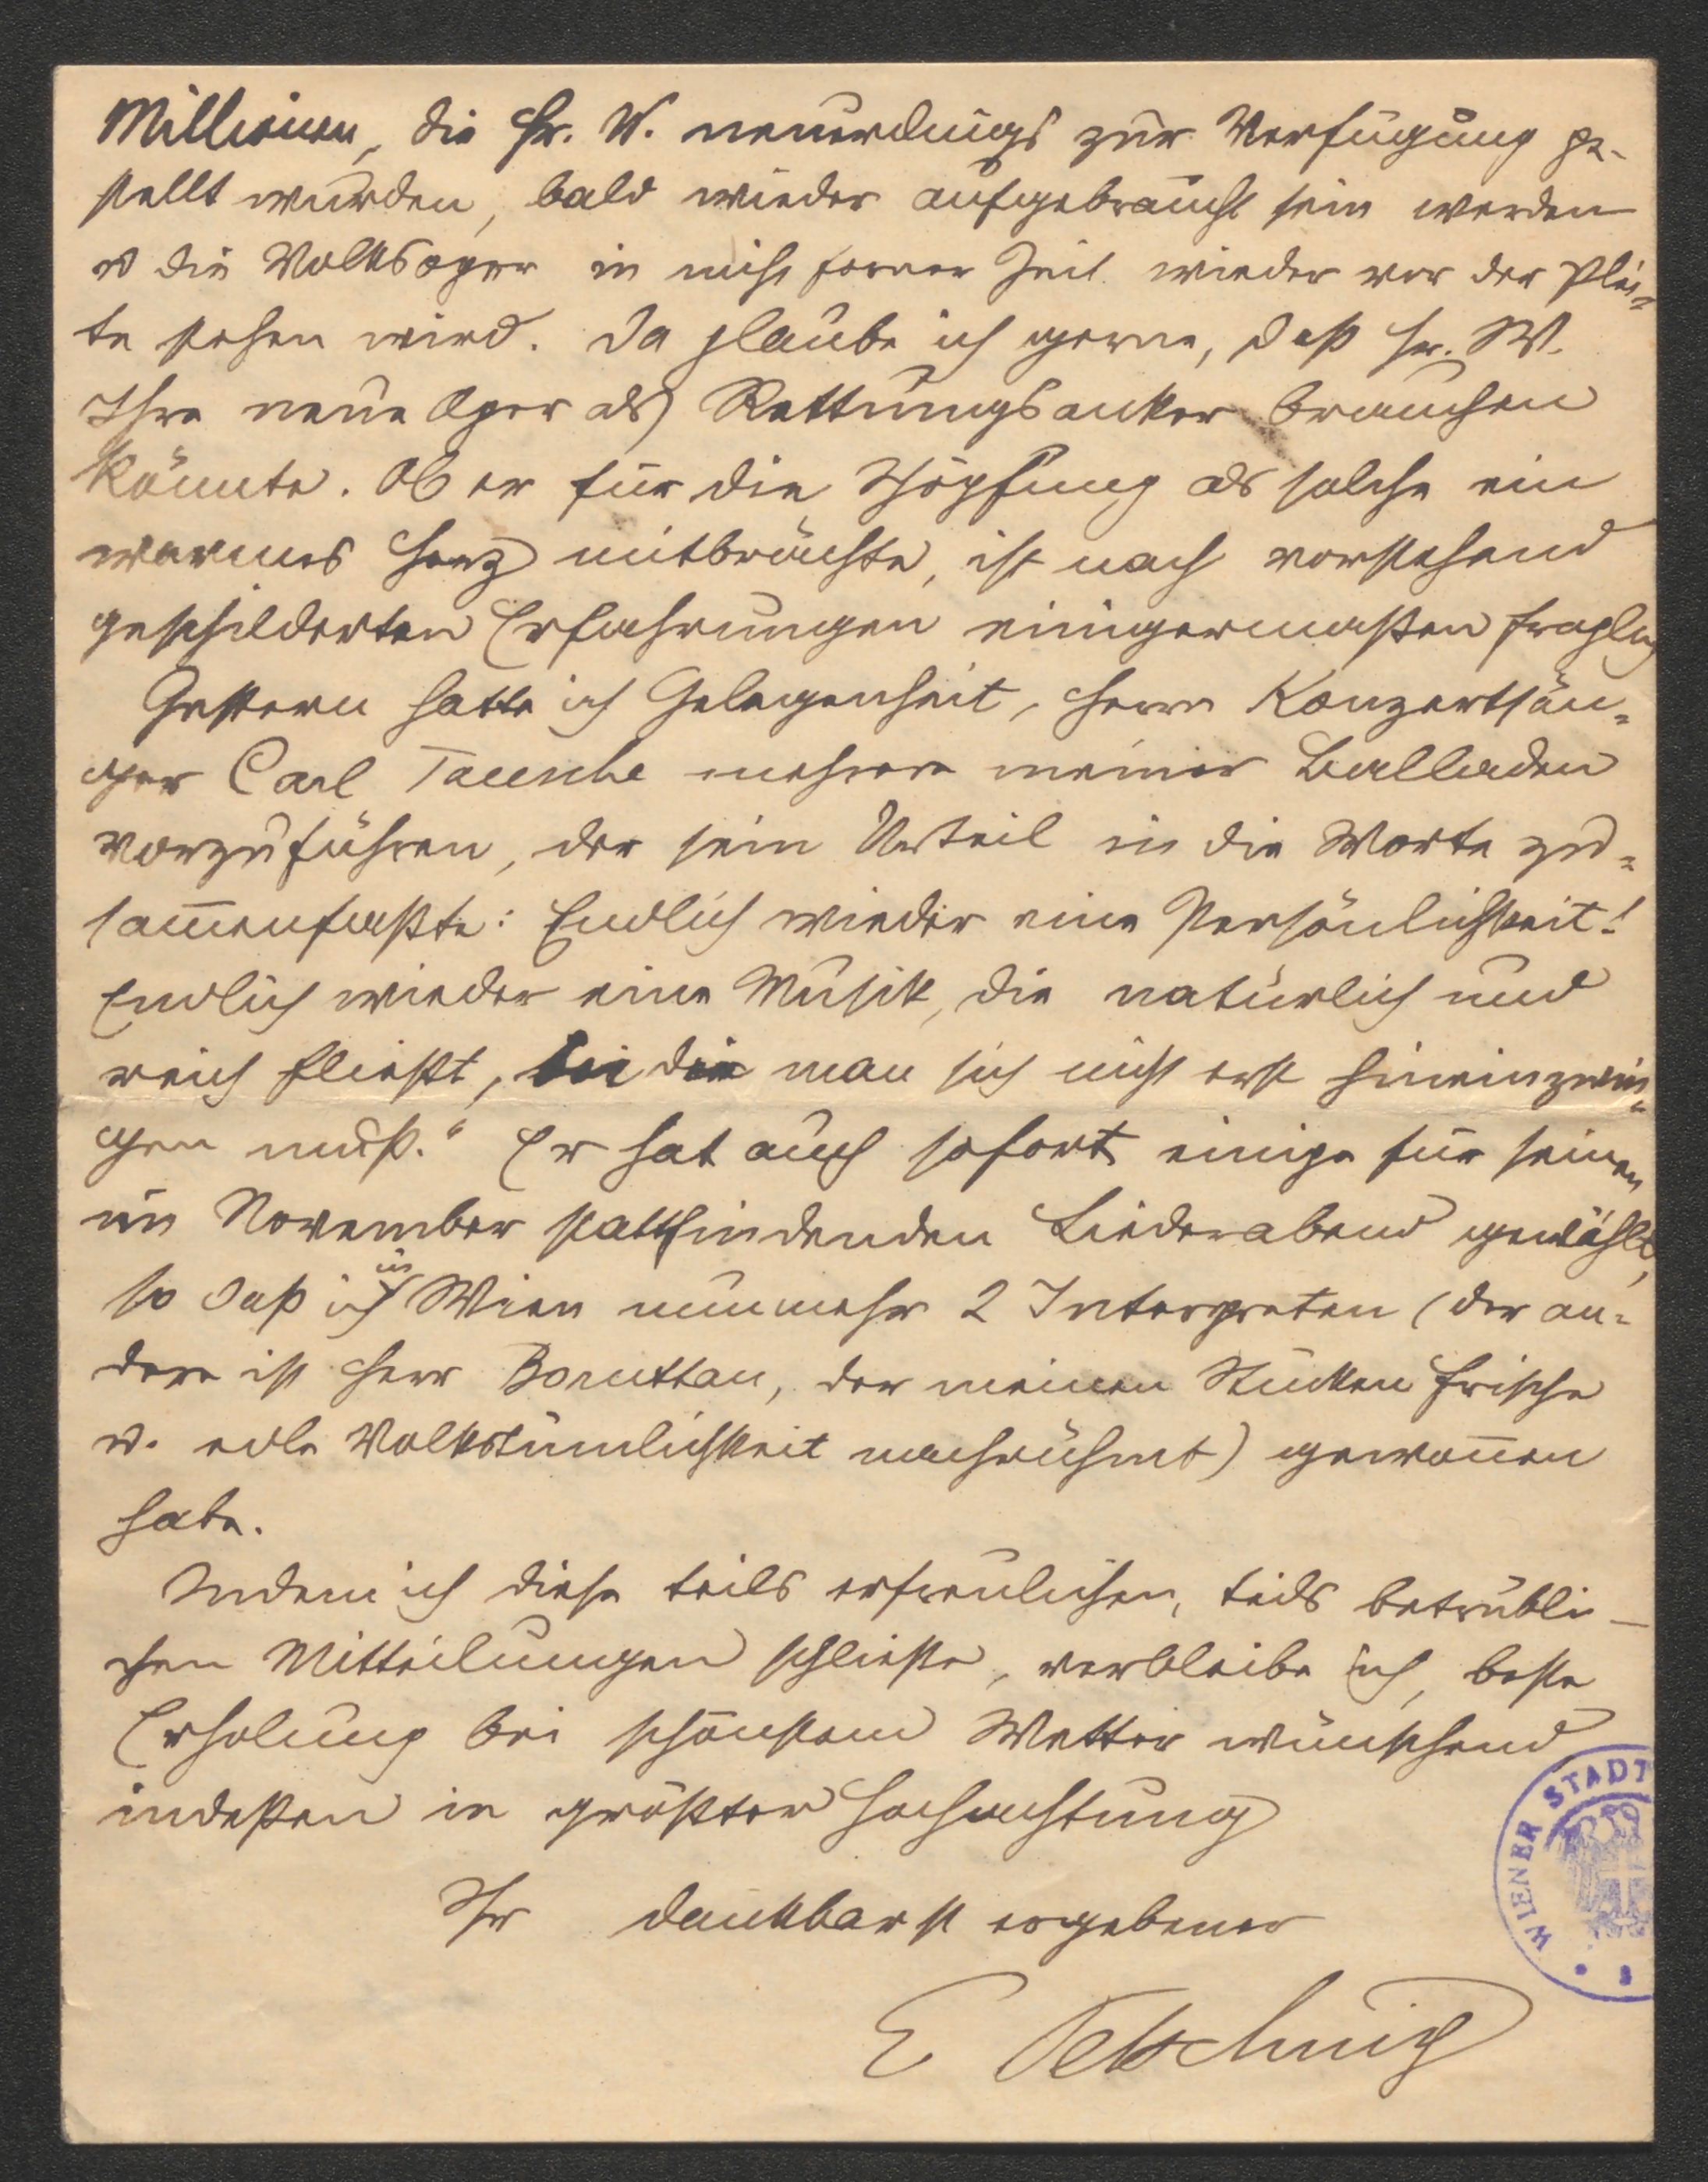 Millionen, die Hr. W. neuerdings zur Verfügung ge-
stellt wurden, bald wieder aufgebraucht sein werden
u die Volksoper in nicht ferner Zeit wieder vor der Plei-
te stehen wird. Da glaube ich gerne, daß Hr. W.
Ihre neue Oper als Rettungsanker brauchen
könnte. Ob er für die Schöpfung als solche ein
warmes Herz mitbrächte, ist nach vorstehend
geschilderten Erfahrungen einigermaßen fraglich
Gestern hatte ich Gelegenheit, Herrn Konzertsän-
ger Carl Tausche mehrere meiner Balladen
vorzuführen, der sein Urteil in die Worte zu-
sam̄enfaßte: Endlich wieder eine Persönlichkeit!
Endlich wieder eine Musik, die natürlich und
reich fließt, bei die man sich nicht erst hineinzwin-
gen muß." Er hat auch sofort einige für seinen
im November stattfindenden Liederabend gewählt,
so daß ich in Wien nunmehr 2 Interpreten (der an-
dere ist Herr Boruttau, der meinen Stücken Frische
u. edle Volkstümlichkeit nachrühmt) gewon̄en
habe.
Indem ich diese teils erfreulichen, teils betrübli-
chen Mitteilungen schließe, verbleibe ich, beste
Erholung bei schönstem Wetter wünschend
indeßen in größter Hochachtung
Ihr dankbarst ergebener
E Petschnig
WIENER STADT